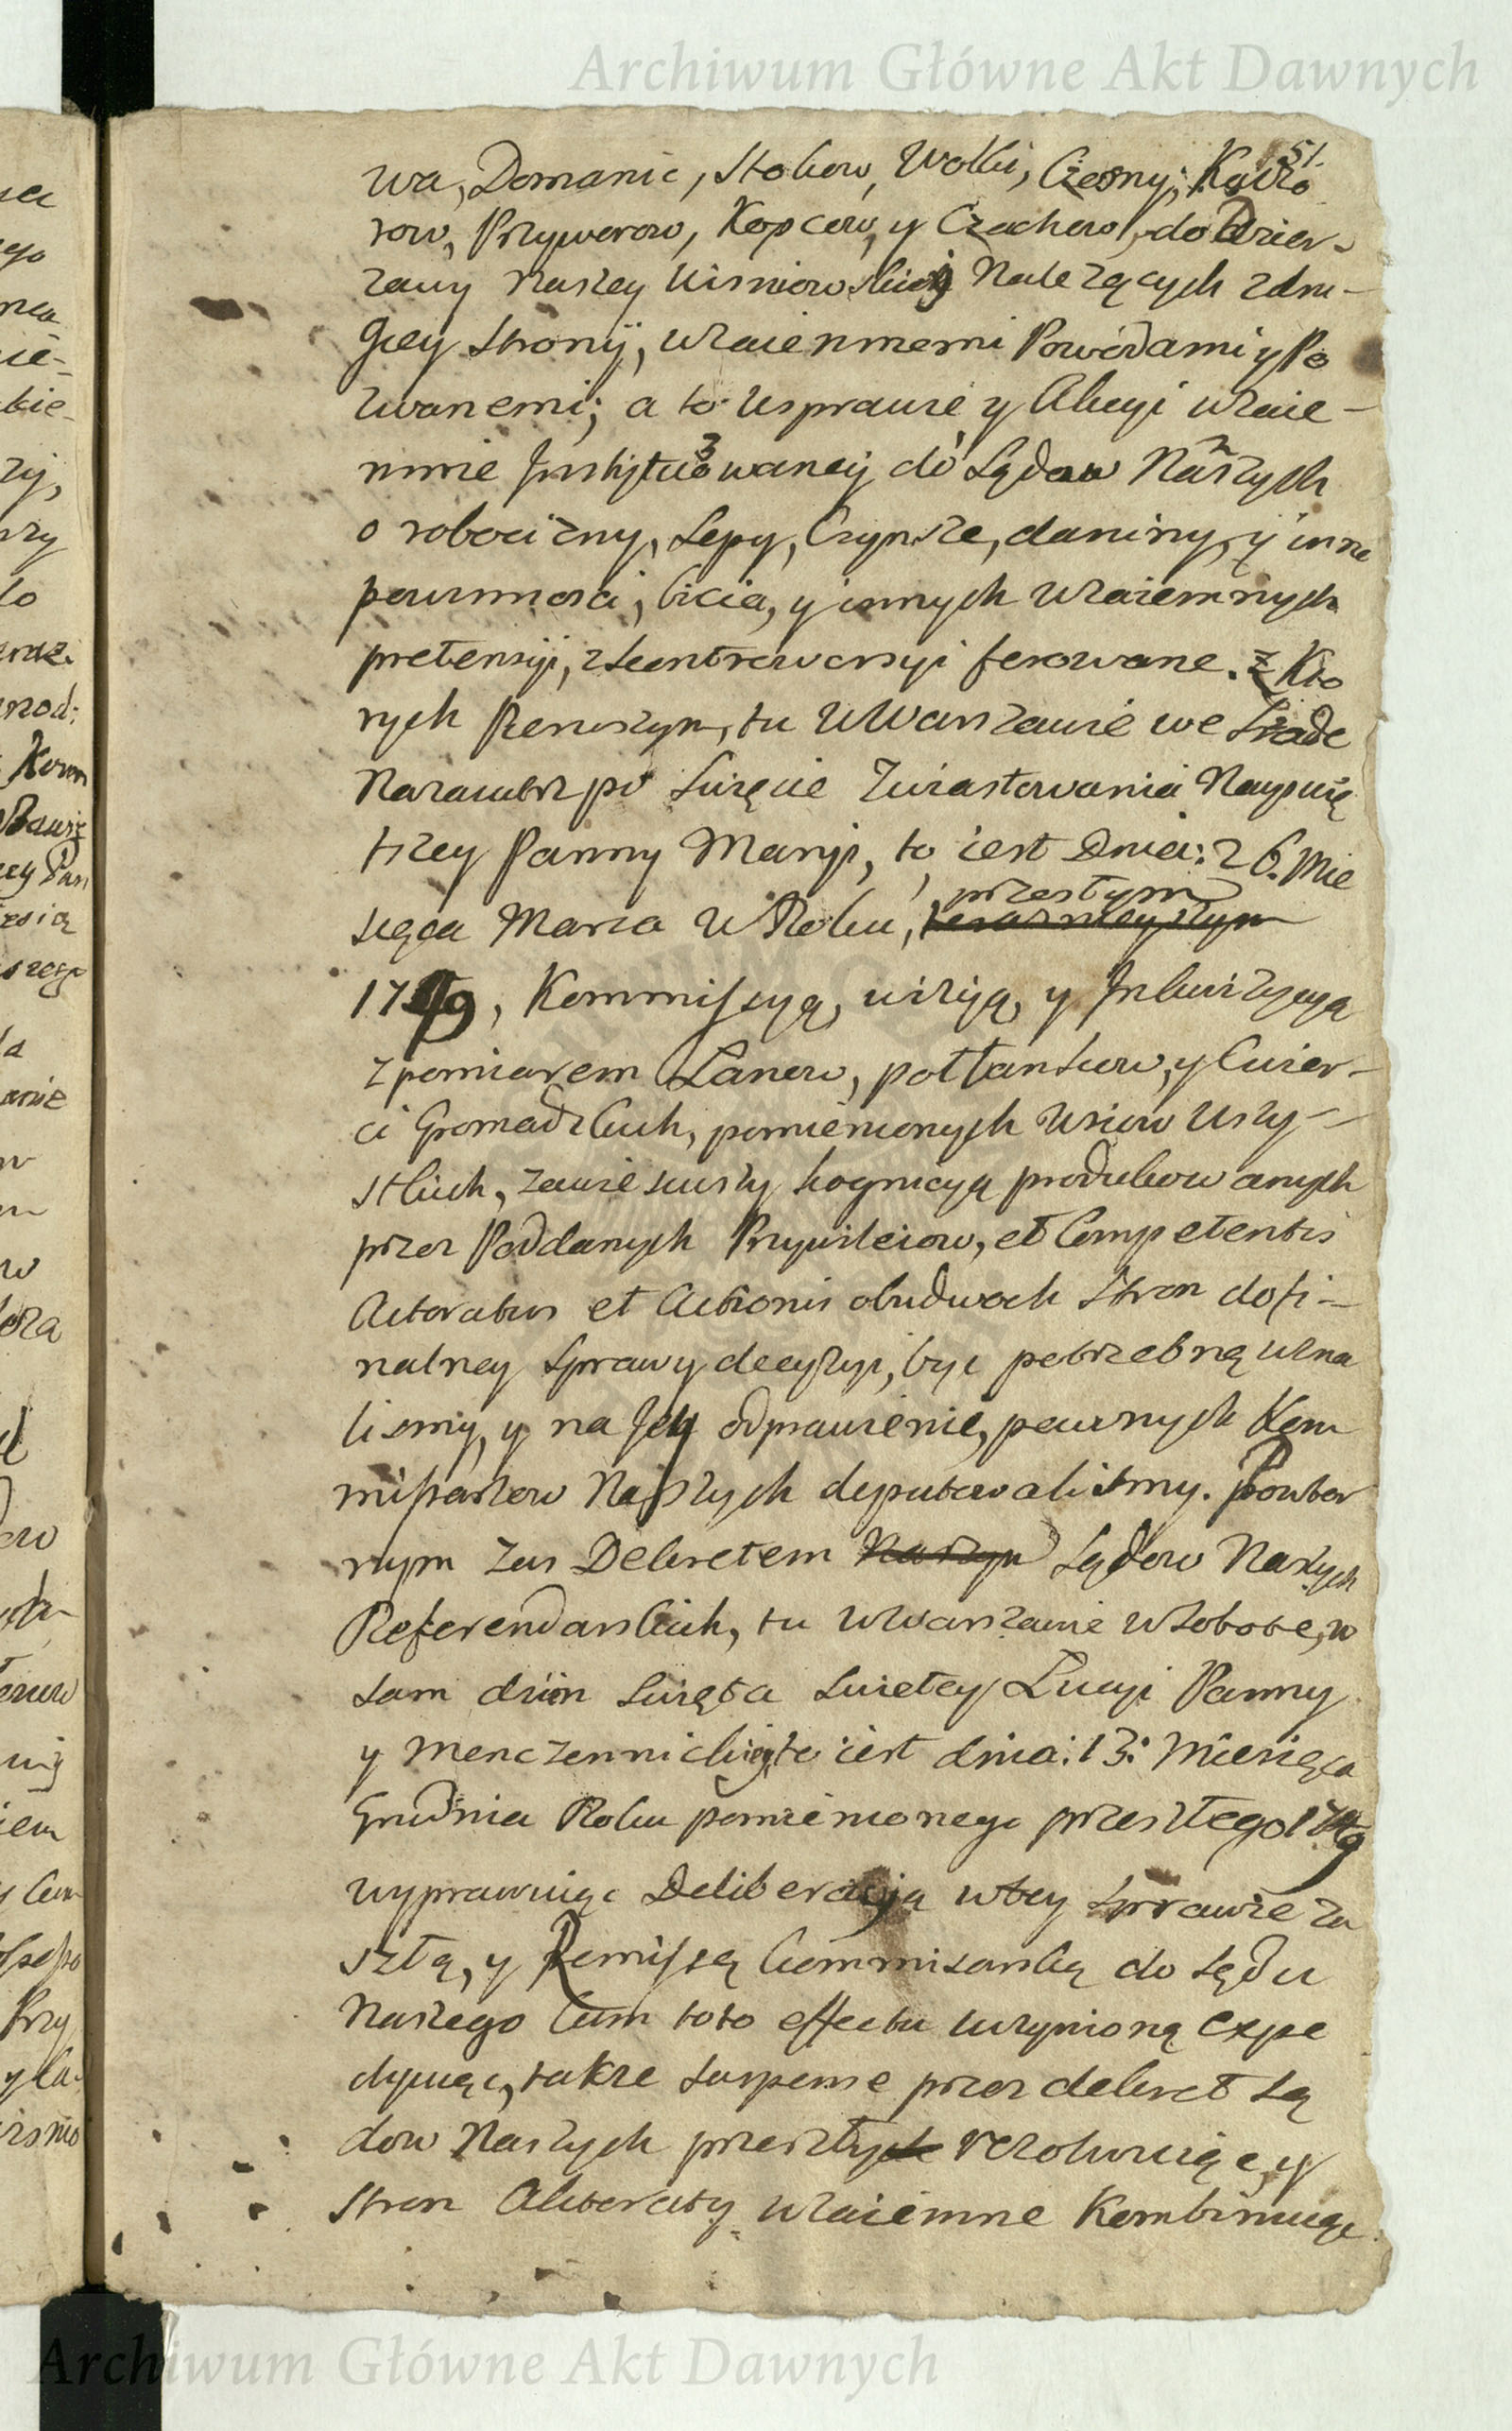 Archiwum Główne Akt Dawnych
51.
wa, Domanic, Stokow, Wolki, Czerny, Kadło
row, Przyworow, Kopcow, y Czachow, do Dzier-
zawy Naszey Wisniowskiey Nalezących zdru-
giey Strony, wzaiemnemi Powodami y Po
zwanemi; a to wsprawie y Akcyi wzaie-
mnie Instytuowaney do Sądow Naszych
o robocizny, Sepy, Czynsze, daniny, y inne
powinnosci, bicia, y innych wzaiemnych
pretensyi, zkontrowersyi ferowane. z Kto
rych Pierwszym, tu w Warszawie we Srzode
Nazaiutrz po Swięcie Zwiastowania Nayswię
trzey Panny Maryi, to iest Dnia: 26. Mie
siąca Marca w Roku, przeszłym
1749, Kommissyą, wizyą, y Inkwizycyą
z pomiarem Łanow, połłankow, y Cwier-
ci Gromadzkich, pomienionych wsiow wszy-
stkich, zawiesiwszy kognicyą produkowanych
przez Poddanych Przywileiow, et Competentis
Actoratus et Actionis obudwoch Stron do fi-
nalney Sprawy decyzyi, być potrzebną uzna
lismy, y na Jey odprawienie, pewnych Kom
missarzow Naszych deputowalismy. Powtor
nym zas Dekretem Naszym Sądow Naszych
Referendarskich, tu w Warszawie w Sobote, w
sam dzien Swięta Swietey Lucyi Panny
y Menczenniczki, to iest dnia: 13: Miesiąca
Grudnia Roku pomienionego przeszłego 1749
wyprawuiąc Deliberacyją wtey Sprawie za
szłą, y Remissą Commisarską do Sądu
Naszego Cum toto effectu uczynioną expe
dyiuąc, takze suspense przez dekret Są
dow Naszych przeszłych rezolwuiąc, y
Stron Akteraty wzaiemne Kombinuiąc
Archiwum Główne Akt Dawnych